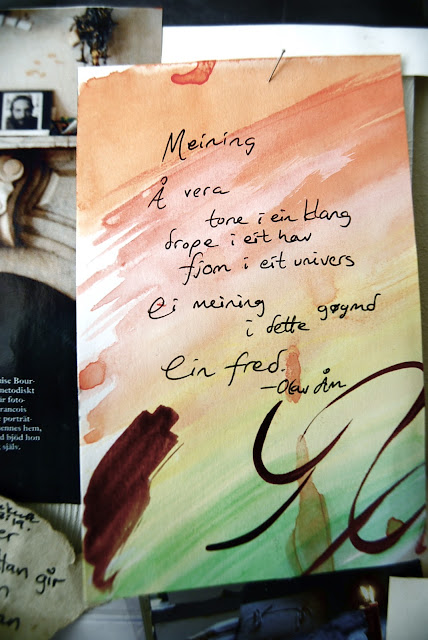 Meining
Å vera
tone i ein klang
drope i eit hav
fjom i eit univers
Ei meining gøymd
i dette
ein fred.
-Olav Åm
ise Bour-
metodiskt
ir foto-
rancois
porträt-
ennes hem,
d bjöd hon
själv.
er
tan går
an